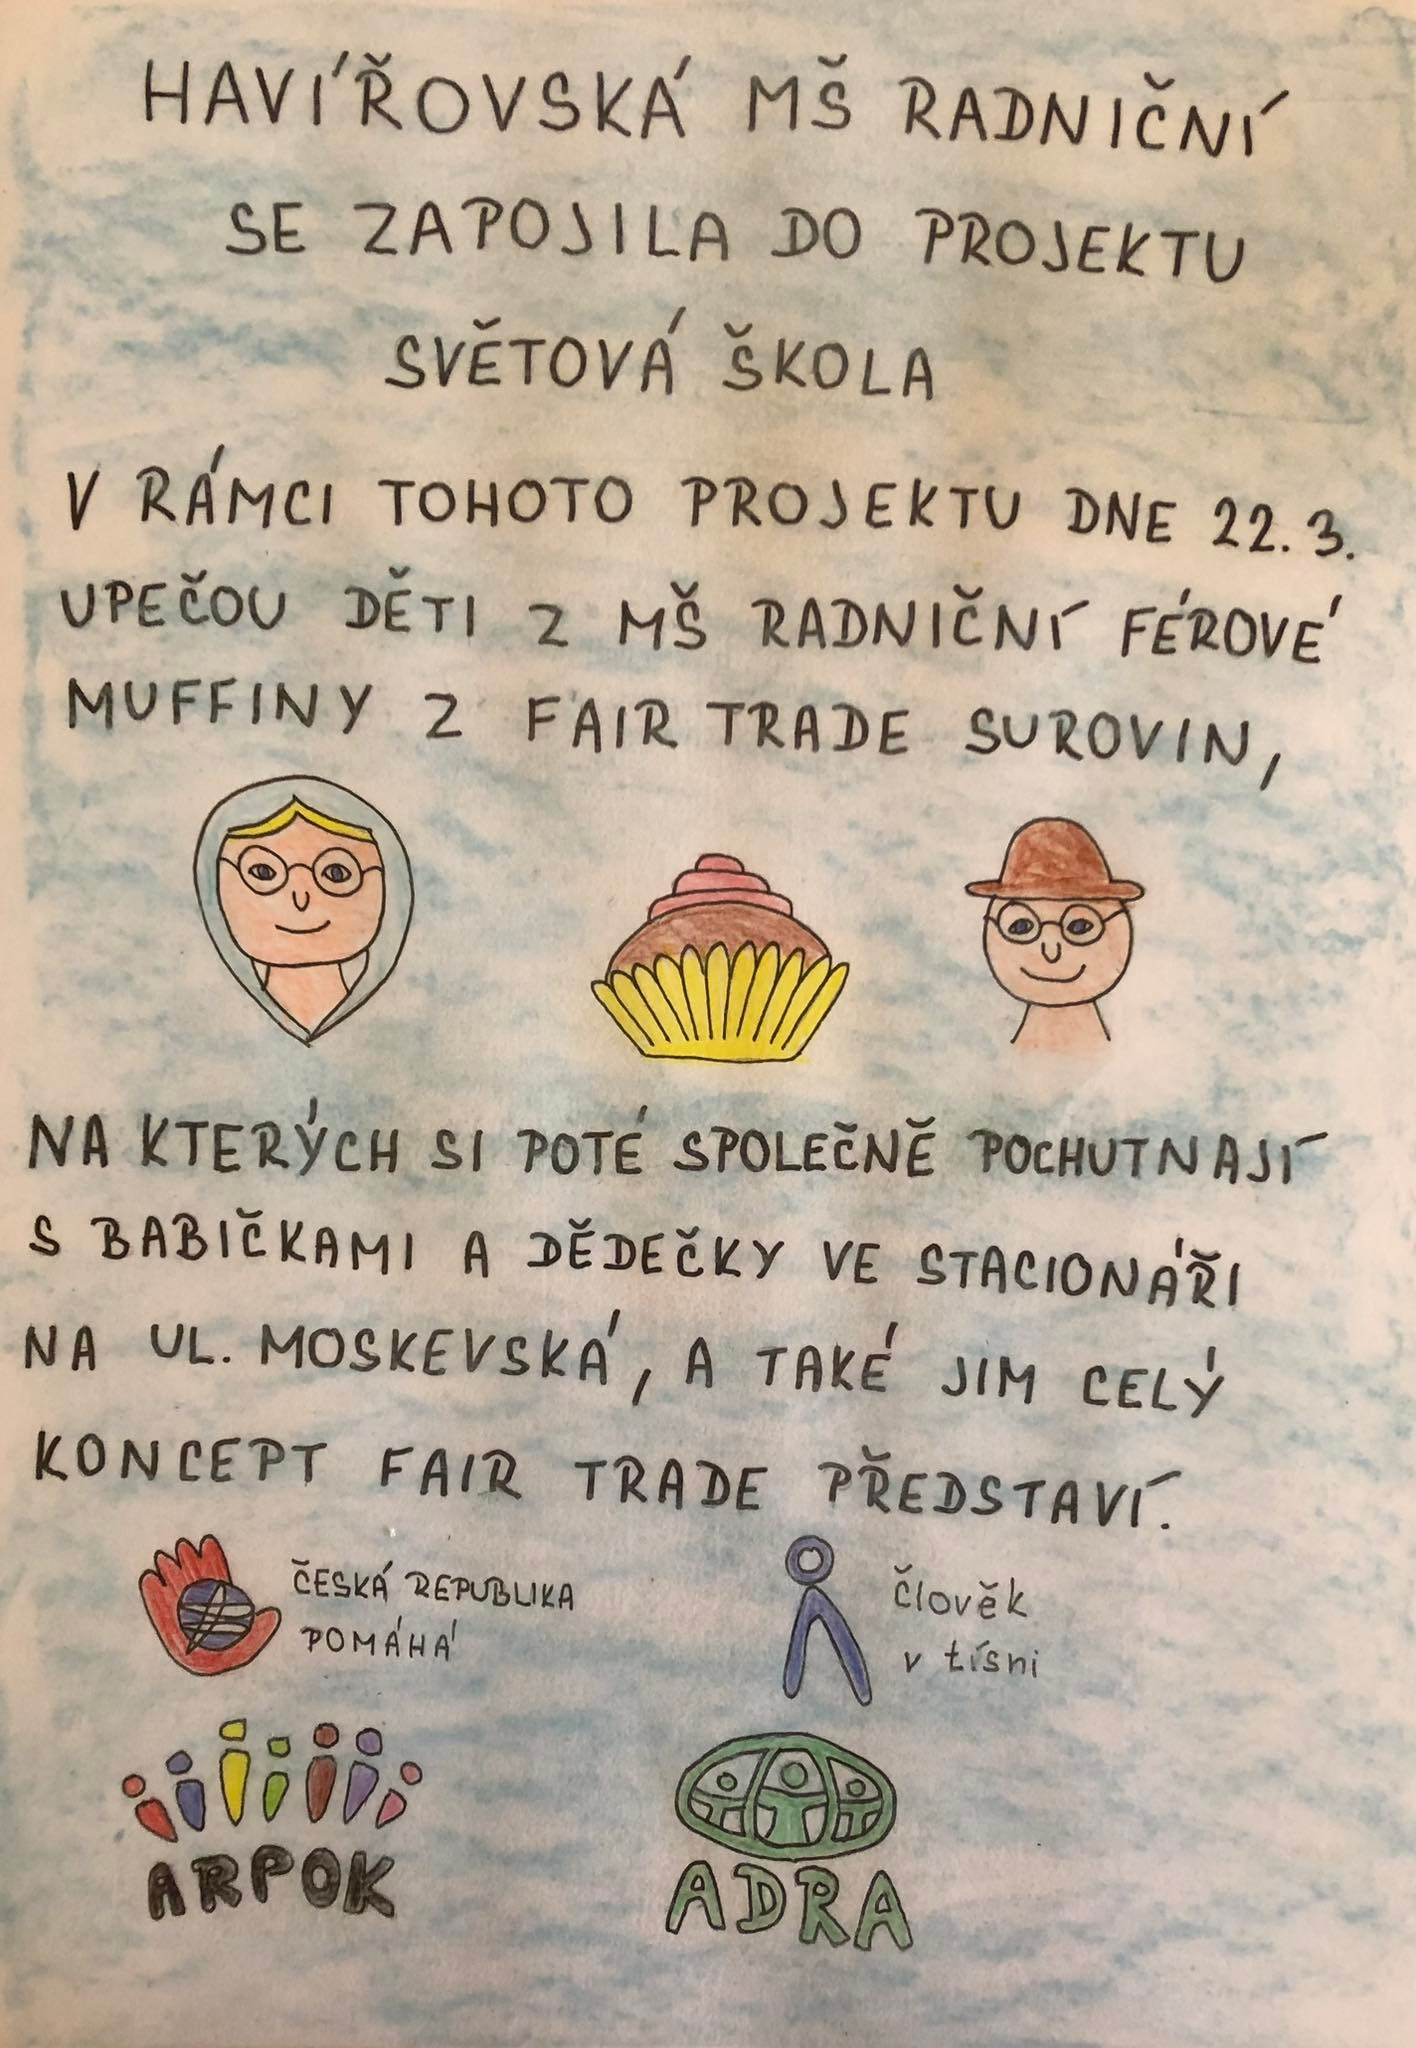 HAVÍŘOVSKÁ MŠ RADNIČNÍ
SE ZAPOJILA DO PROJEKTU
SVĚTOVÁ ŠKOLA
V RÁMCI TOHOTO PROJEKTU DNE 22. 3.
UPEČOU DĚTI Z MŠ RADNIČNÍ FÉROVÉ
MUFFINY Z FAIR TRADE SUROVIN,
NA KTERÝCH SI POTÉ SPOLEČNĚ POCHUTNAJÍ
S BABIČKAMI A DĚDEČKY VE STACIONÁŘI
NA UL. MOSKEVSKÁ, A TAKÉ JIM CELÝ
KONCEPT FAIR TRADE PŘEDSTAVÍ.
ČESKÁ REPUBLIKA
POMÁHÁ
člověk
v tísni
ARPOK
ADRA